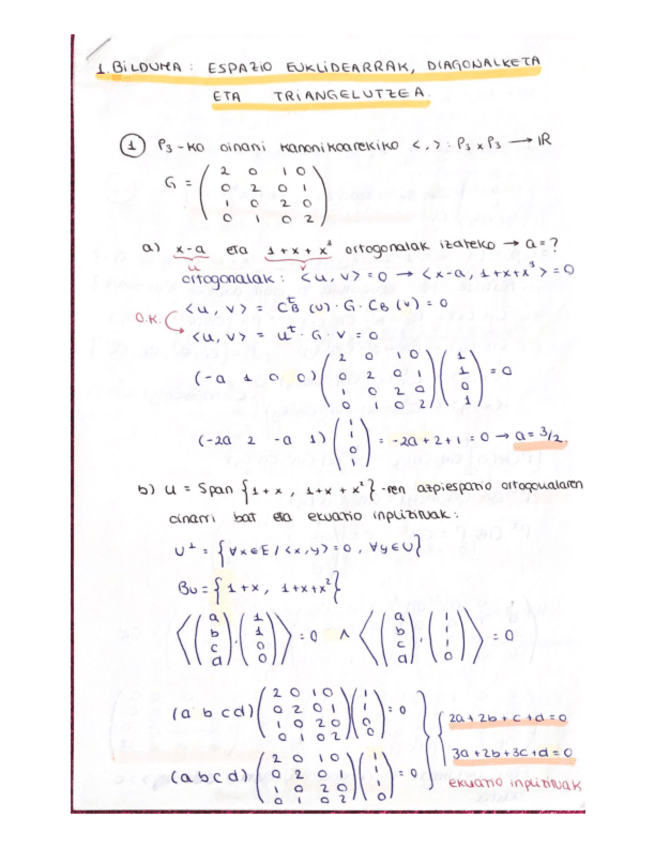 1. BILDUMA : ESPAZIO EUKLIDEARRAK, DIAGONALKETA
ETA TRIANGELUTZEA.
① P₃-KO oinarri kanonikoarekiko <,> : P₃ x P₃ → IR
G = ( 2 0 1 0
0 2 0 1
1 0 2 0
0 1 0 2 )
a) x-a eta 1+x+x³ ortogonalak izateko → a = ?
u v
ortogonalak : <u,v> = 0 → <x-a, 1+x+x³> = 0
<u,v> = C_B^t (u) · G · C_B (v) = 0
O.K.
<u,v> = u^t · G · v = 0
(-a 1 0 0) ( 2 0 1 0
0 2 0 1
1 0 2 0
0 1 0 2 ) ( 1
1
0
1 ) = 0
(-2a 2 -a 1) ( 1
1
0
1 ) = -2a + 2 + 1 = 0 → a = 3/2.
b) U = Span {1+x, 1+x+x²} -ren azpiespazio ortogonalaren
oinarri bat eta ekuazio inplizituak :
U⊥ = {∀x∈E / <x,y> = 0, ∀y∈U}
Bu = {1+x, 1+x+x²}
< ( a
b
c
d ) , ( 1
1
0
0 ) > = 0 ∧ < ( a
b
c
d ) , ( 1
1
1
0 ) > = 0
(a b c d) ( 2 0 1 0
0 2 0 1
1 0 2 0
0 1 0 2 ) ( 1
1
0
0 ) = 0
2a + 2b + c + d = 0
(a b c d) ( 2 0 1 0
0 2 0 1
1 0 2 0
0 1 0 2 ) ( 1
1
1
0 ) = 0
3a + 2b + 3c + d = 0
ekuazio inplizituak